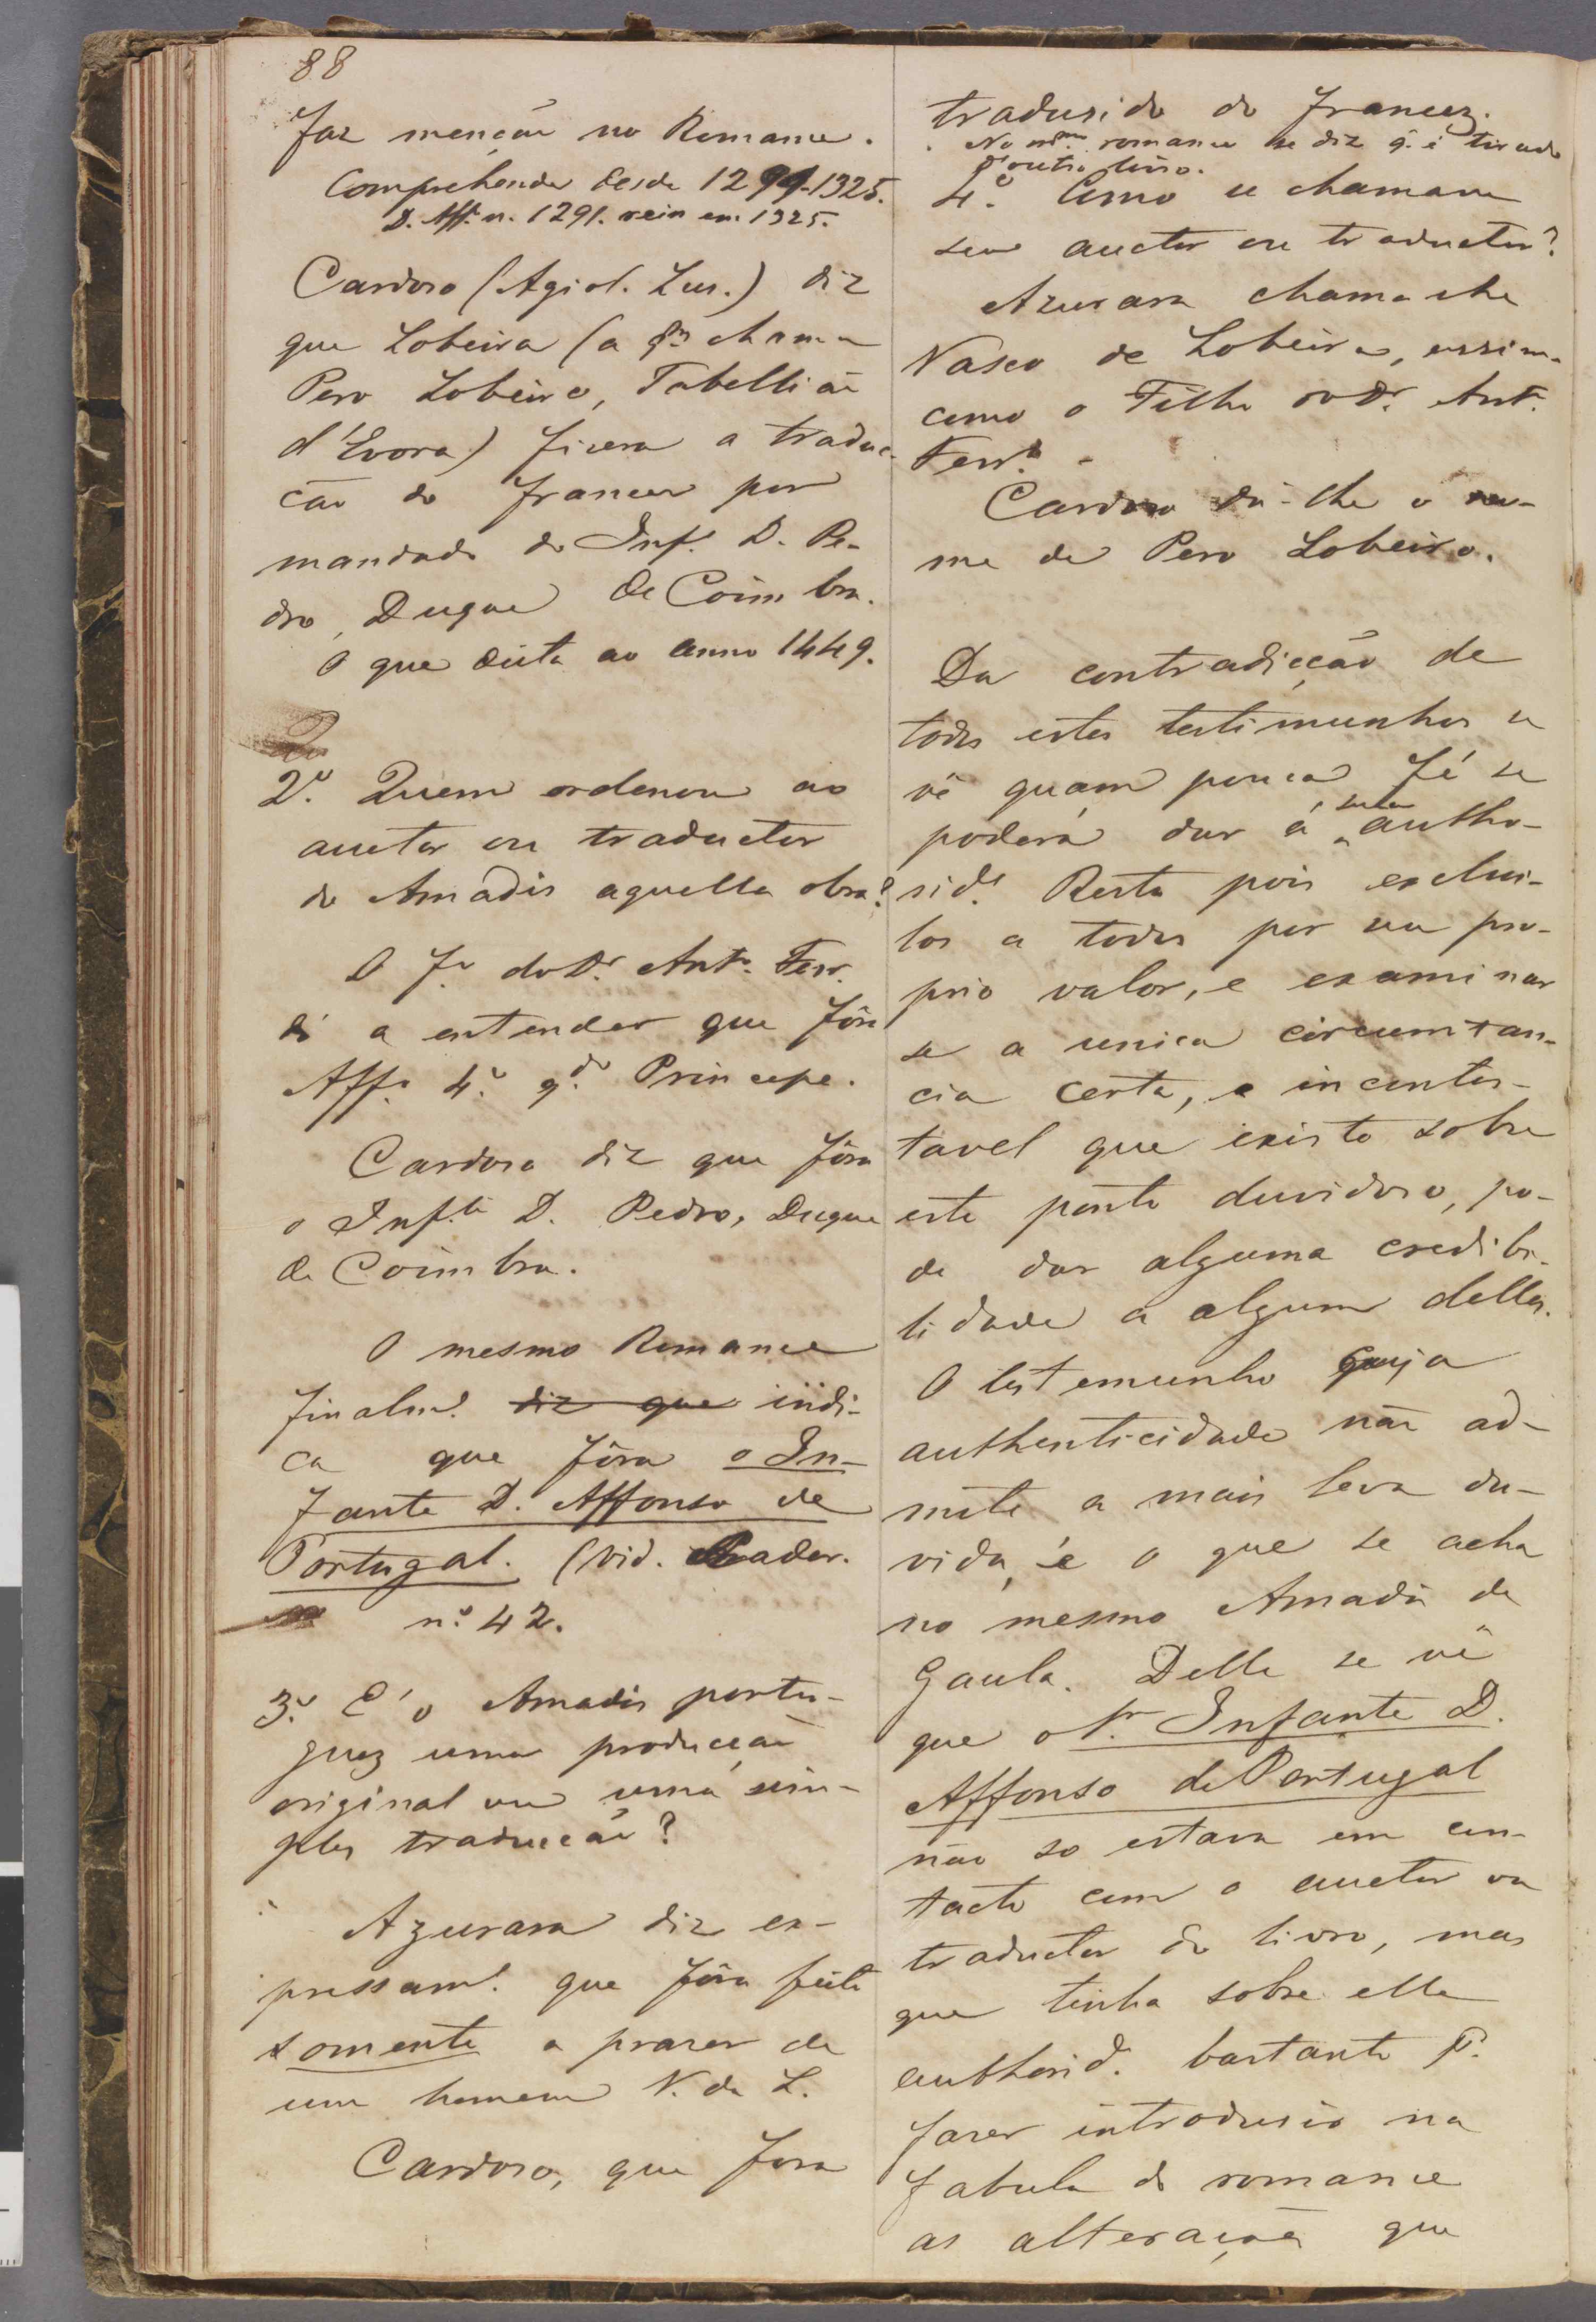 88
faz menção no Romance.
Comprehende desde 1291-1325.
D. Aff.º n. 1291. rein em 1325.
Cardoso (Agiol. Lus.) diz
que Lobeira (a q.m chama
Pero Lobeiro, Tabellião
d'Evora) fizera a traduc-
ção do francez por
mandado do Inf.e D. Pe-
dro, Duque de Coimbra.
O que deita ao anno 1449.
2.º Quem ordenou ao
auctor ou traductor
do Amadis aquella obra?
O f.º do D.r Ant.º Ferr.
dá a entender que fôra
Aff.º 4.º q.do Principe.
Cardoso diz que fôra
o Inf.te D. Pedro, Duque
de Coimbra.
O mesmo Romance
finalm.e diz que indi-
ca que fôra o In-
fante D. Affonso de
Portugal. (vid. Cader.
n.º 42.
3.º É o Amadis portu-
guez uma producção
original ou uma sim-
ples traducção?
Azurara diz ex-
pressam.e que fôra feito
somente a prazer de
um homem V. de L.
Cardoso, que fora
tradusido do francez.
No m.mo romance se diz q. é tirado
d'outro livro.
4.º Como se chamava
seu auctor ou traductor?
Azurara chama-lhe
Vasco de Lobeira, assim
como o Filho do D.r Ant.º
Ferr.ª
Cardoso dá-lhe o no-
me de Pero Lobeiro.
Da contradicção de
todos estes testimunhos se
vê quam pouca fé se
poderá dar á sua autho-
rid.e Resta pois exclui-
los a todos por seu pro-
prio valor, e examinar
se a unica circumstan-
cia certa, e incontes-
tavel que existe sobre
este ponto duvidoso, po-
de dar alguma credibi-
lidade a algum delles.
O testemunho cuja
authenticidade não ad-
mite a mais leve du-
vida, é o que se acha
no mesmo Amadis de
Gaula. Delle se vê
que o Sr. Infante D.
Affonso de Portugal
não so estava em con-
tacto com o auctor ou
traductor do livro, mas
que tinha sobre elle
authorid.e bastante p.ª
fazer introdusir na
fabula do romance
as alterações que